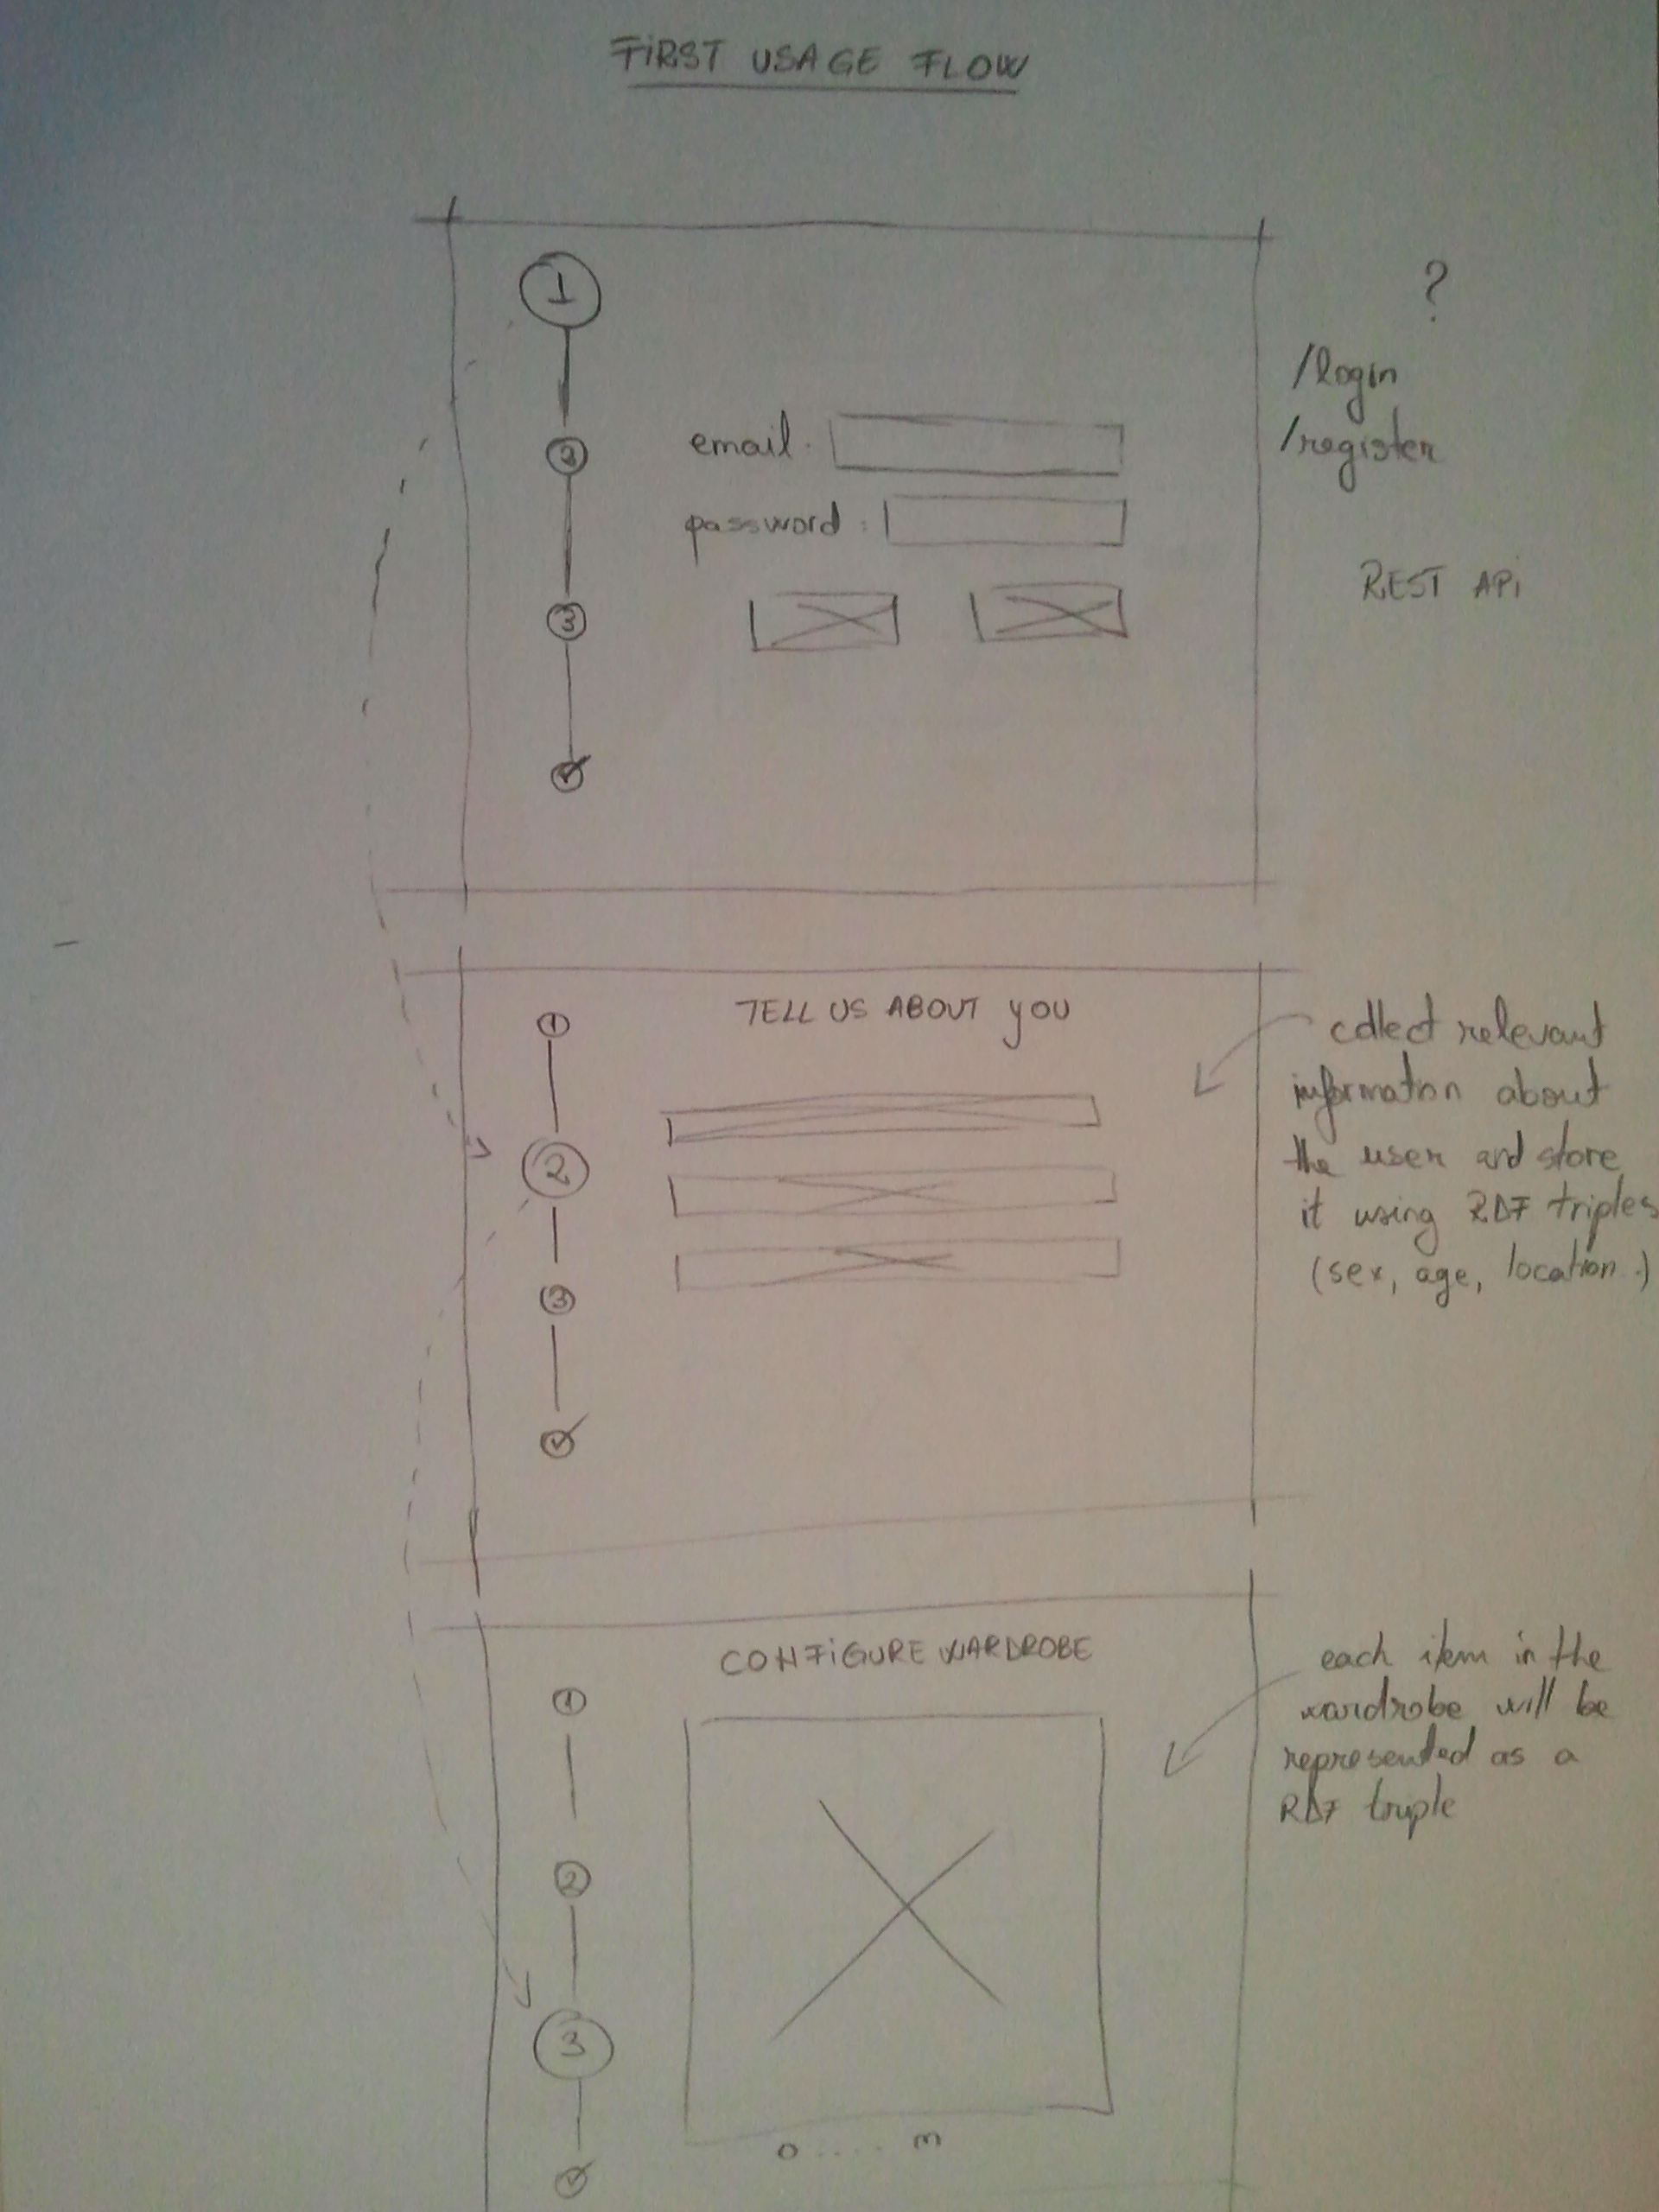 FIRST USAGE FLOW
1
2
3
email:
password:
?
/login
/register
REST API
TELL US ABOUT YOU
1
2
3
collect relevant
information about
the user and store
it using RDF triples
(sex, age, location..)
CONFIGURE WARDROBE
1
2
3
0 .... m
each item in the
wardrobe will be
represented as a
RDF triple